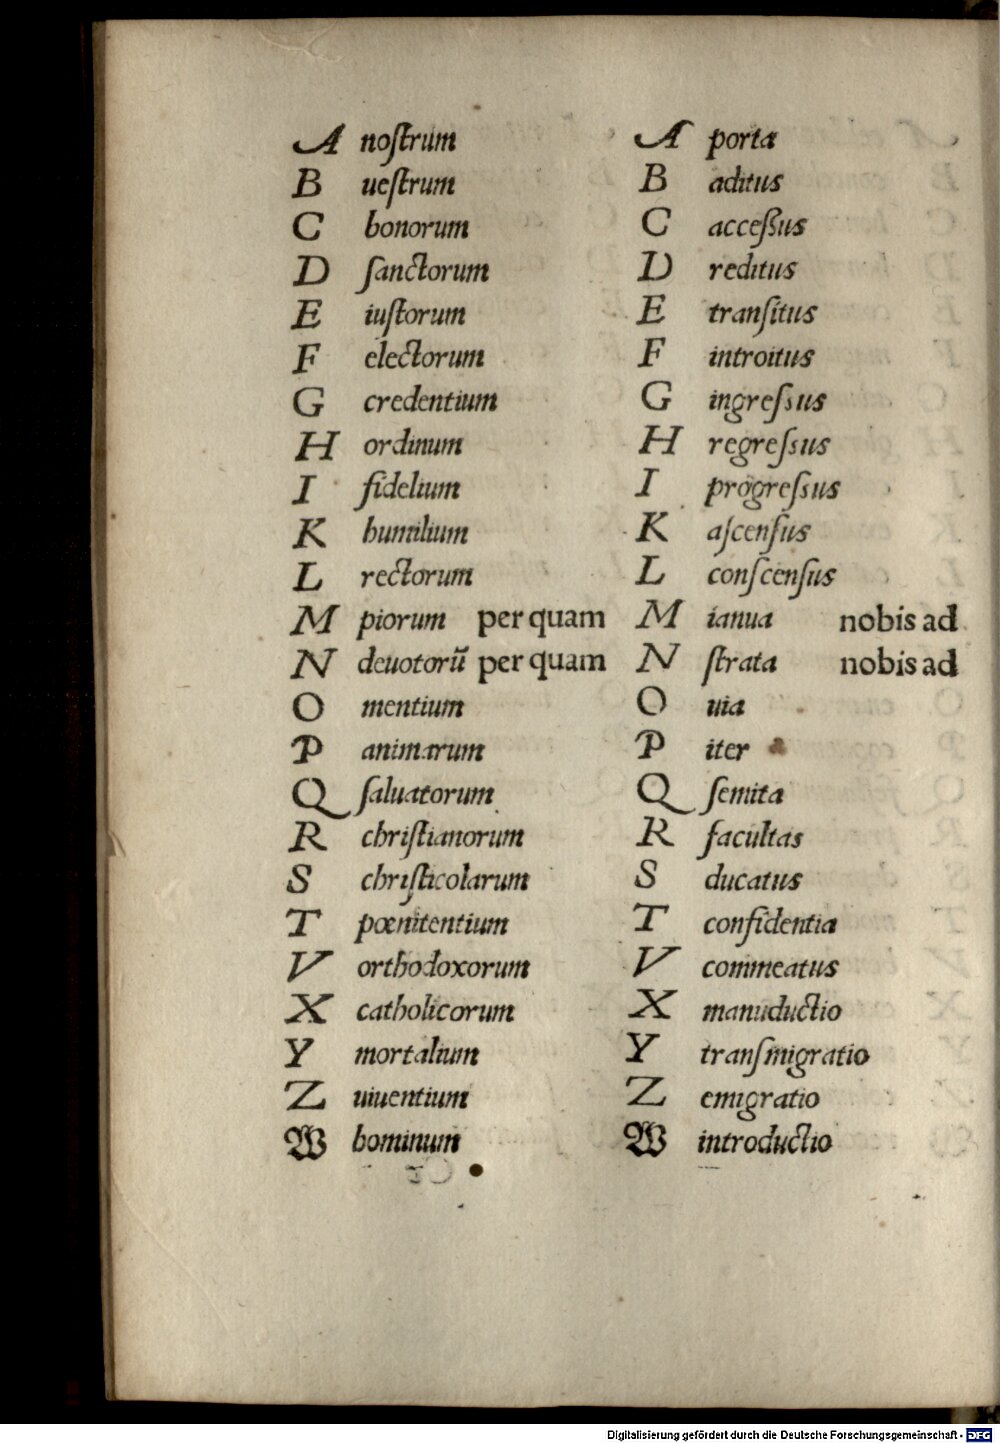 A noſtrum
B ueſtrum
C bonorum
D ſanctorum
E iuſtorum
F electorum
G credentium
H ordinum
I fidelium
K humilium
L rectorum
M piorum per quam
N deuotorū per quam
O mentium
P animarum
Q ſaluatorum
R chriſtianorum
S chriſticolarum
T pœnitentium
V orthodoxorum
X catholicorum
Y mortalium
Z uiuentium
W hominum
A porta
B aditus
C acceſſus
D reditus
E tranſitus
F introitus
G ingreſsus
H regreſsus
I progreſsus
K aſcenſus
L conſcenſus
M ianua nobis ad
N ſtrata nobis ad
O uia
P iter
Q ſemita
R facultas
S ducatus
T confidentia
V commeatus
X manuductio
Y tranſmigratio
Z emigratio
W introductio
Digitalisierung gefördert durch die Deutsche Forschungsgemeinschaft - DFG